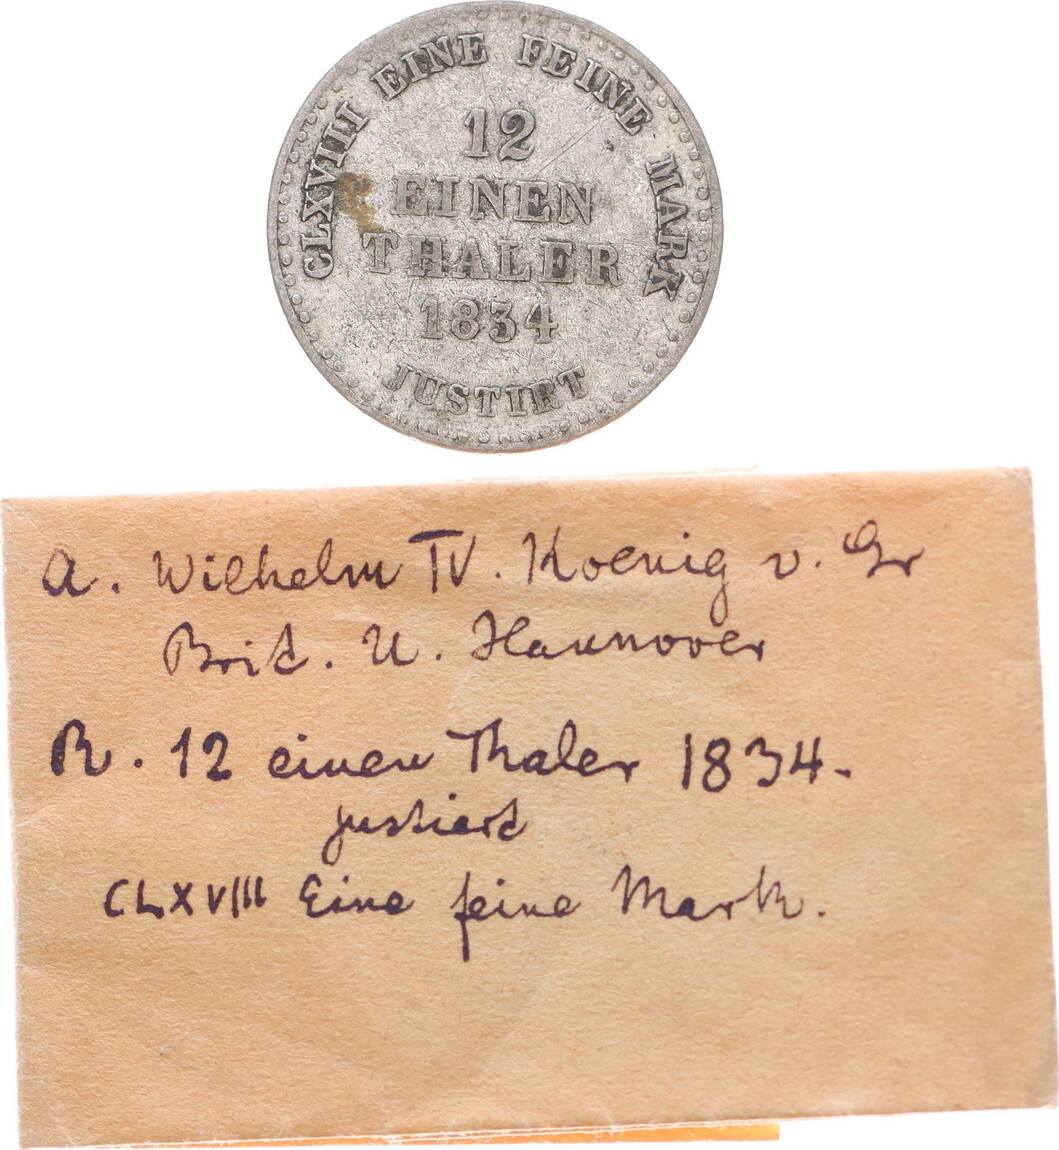 CLXVIII EINE FEINE MARK
12
EINEN
THALER
1834
JUSTIRT
A. Wilhelm IV. Koenig v. Gr
Brit. U. Hannover
R. 12 einen Thaler 1834.
justiert
CLXVIII Eine feine Mark.